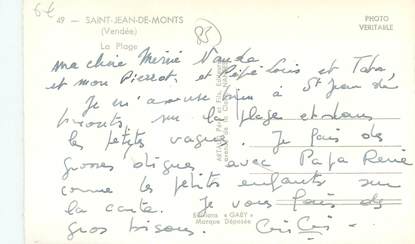 6€
49 - SAINT-JEAN-DE-MONTS
(Vendée)
La Plage
85
PHOTO
VERITABLE
ma chère Mémé Vanda
et mon Pierrot, et Pépé Louis et Tata,
Je m'amuse bien à St Jean de
monts, sur la plage et dans
les petites vagues. Je fais des
grosses digues avec Papa René
comme les petits enfants sur
la carte. Je vous fais des
gros bisous. CriCri
Editions « GABY »
Marque Déposée